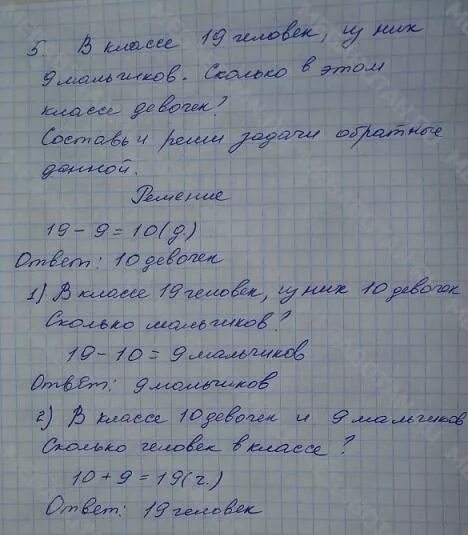 5. В классе 19 человек, из них
9 мальчиков. Сколько в этом
классе девочек?
Составь и реши задачи обратные
данной.
Решение
19 - 9 = 10 (д.)
Ответ: 10 девочек
1) В классе 19 человек, из них 10 девочек
Сколько мальчиков?
19 - 10 = 9 мальчиков
Ответ: 9 мальчиков
2) В классе 10 девочек и 9 мальчиков
Сколько человек в классе?
10 + 9 = 19 (ч.)
Ответ: 19 человек